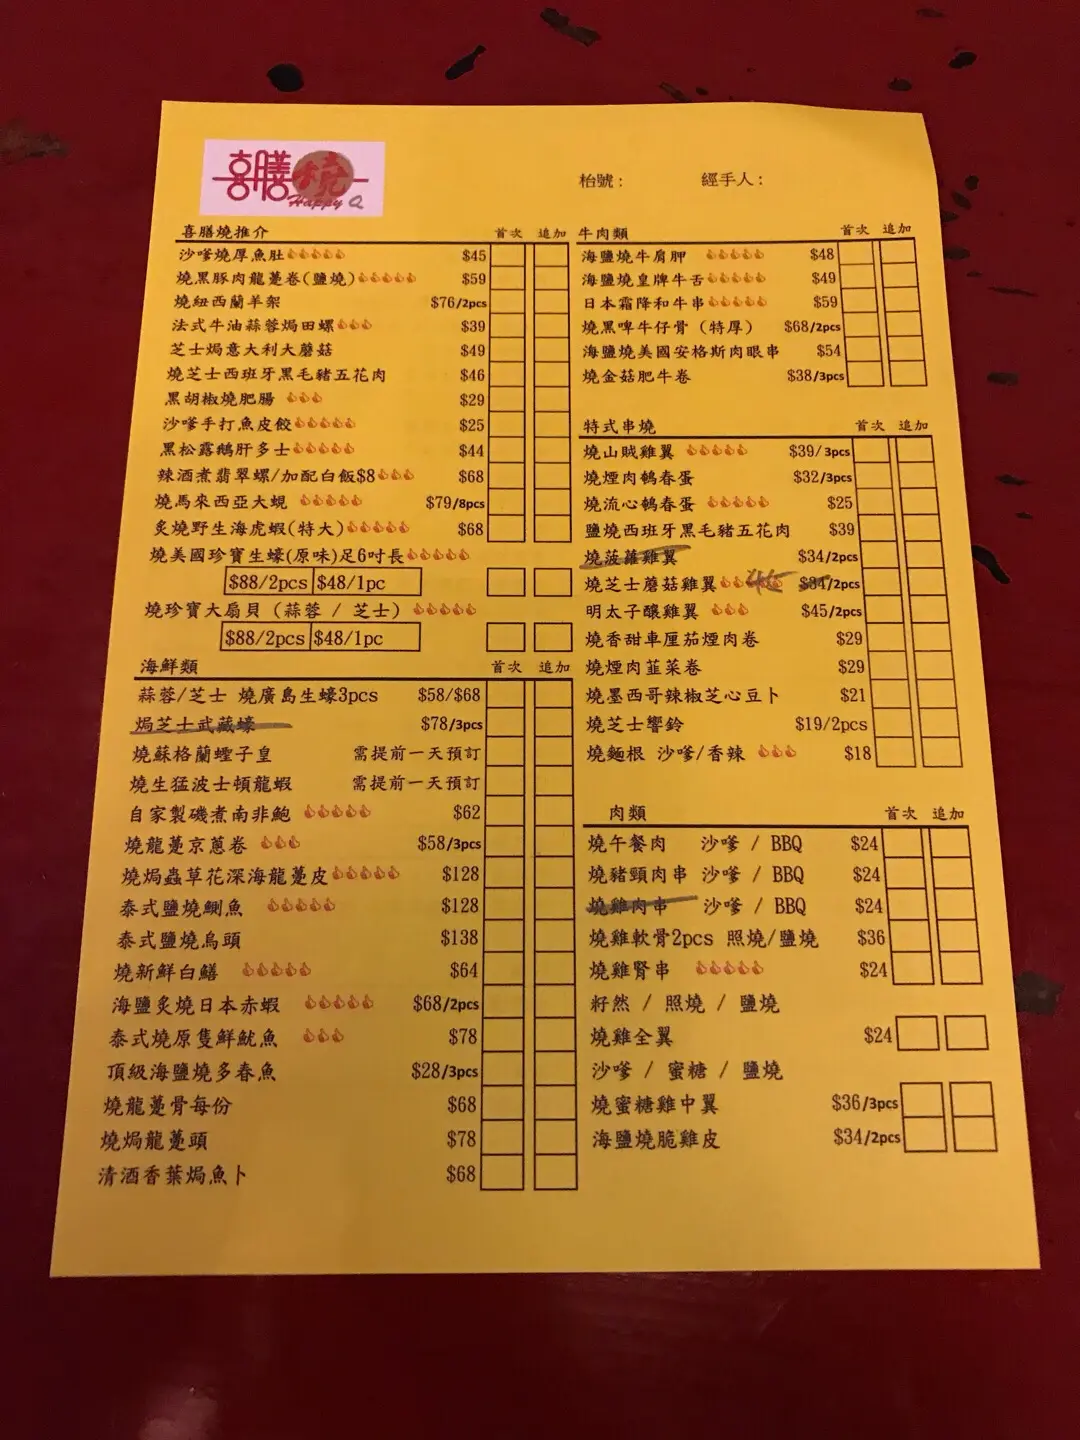 喜膳燒
Happy Q
枱號：
經手人：
喜膳燒推介 首次 追加
沙嗲燒厚魚肚 $45
燒黑豚肉龍躉卷(鹽燒) $59
燒紐西蘭羊架 $76/2pcs
法式牛油蒜蓉焗田螺 $39
芝士焗意大利大蘑菇 $49
燒芝士西班牙黑毛豬五花肉 $46
黑胡椒燒肥腸 $29
沙嗲手打魚皮餃 $25
黑松露鵝肝多士 $44
辣酒煮翡翠螺/加配白飯$8 $68
燒馬來西亞大蜆 $79/8pcs
炙燒野生海虎蝦(特大) $68
燒美國珍寶生蠔(原味)足6吋長
$88/2pcs $48/1pc
燒珍寶大扇貝（蒜蓉 / 芝士）
$88/2pcs $48/1pc
海鮮類 首次 追加
蒜蓉/芝士 燒廣島生蠔3pcs $58/$68
焗芝士武藏蠔 $78/3pcs
燒蘇格蘭蟶子皇 需提前一天預訂
燒生猛波士頓龍蝦 需提前一天預訂
自家製磯煮南非鮑 $62
燒龍躉京蔥卷 $58/3pcs
燒焗蟲草花深海龍躉皮 $128
泰式鹽燒鰂魚 $128
泰式鹽燒烏頭 $138
燒新鮮白鱔 $64
海鹽炙燒日本赤蝦 $68/2pcs
泰式燒原隻鮮魷魚 $78
頂級海鹽燒多春魚 $28/3pcs
燒龍躉骨每份 $68
燒焗龍躉頭 $78
清酒香葉焗魚卜 $68
牛肉類 首次 追加
海鹽燒牛肩胛 $48
海鹽燒皇牌牛舌 $49
日本霜降和牛串 $59
燒黑啤牛仔骨（特厚） $68/2pcs
海鹽燒美國安格斯肉眼串 $54
燒金菇肥牛卷 $38/3pcs
特式串燒 首次 追加
燒山賊雞翼 $39/3pcs
燒煙肉鵪春蛋 $32/3pcs
燒流心鵪春蛋 $25
鹽燒西班牙黑毛豬五花肉 $39
燒菠蘿雞翼 $34/2pcs
燒芝士蘑菇雞翼 $34/2pcs
明太子釀雞翼 $45/2pcs
燒香甜車厘茄煙肉卷 $29
燒煙肉韮菜卷 $29
燒墨西哥辣椒芝心豆卜 $21
燒芝士響鈴 $19/2pcs
燒麵根 沙嗲/香辣 $18
肉類 首次 追加
燒午餐肉 沙嗲 / BBQ $24
燒豬頸肉串 沙嗲 / BBQ $24
燒雞肉串 沙嗲 / BBQ $24
燒雞軟骨2pcs 照燒/鹽燒 $36
燒雞腎串 $24
籽然 / 照燒 / 鹽燒
燒雞全翼 $24
沙嗲 / 蜜糖 / 鹽燒
燒蜜糖雞中翼 $36/3pcs
海鹽燒脆雞皮 $34/2pcs